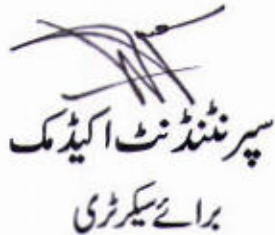 سپرنٹنڈنٹ اکیڈمک
برائے سیکرٹری